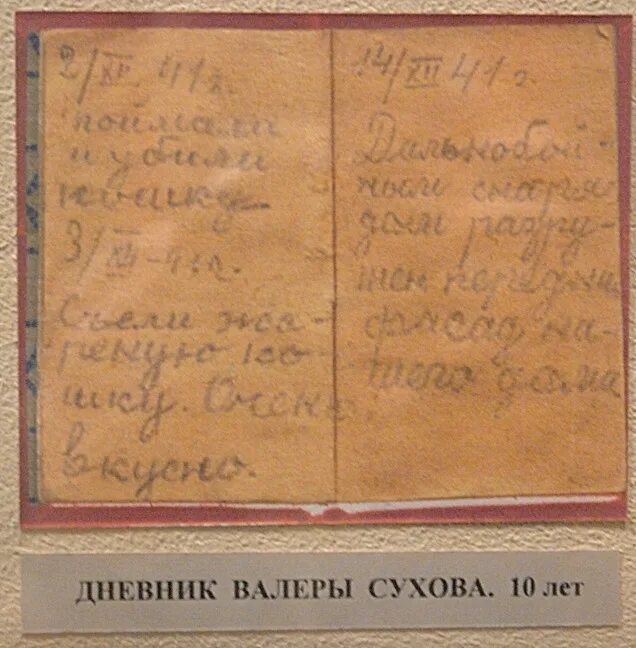 2/XII 41 г.
поймали
и убили
кошку
3/XII-41г.
Съели жа-
реную ко-
шку. Очень
вкусно.
14/XII 41 г.
Дальнобой-
ным снаря-
дом разру-
шен передни
фасад на-
шего дома
ДНЕВНИК ВАЛЕРЫ СУХОВА. 10 лет